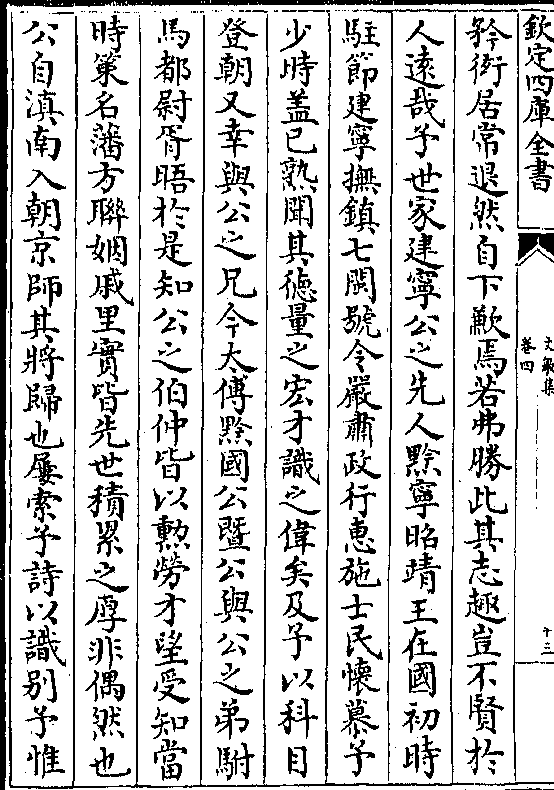 欽定四庫全書
文敏集
卷四
十三
矜衒居常退然自下歉焉若弗勝此其志趣豈不賢於
人遠哉予世家建寧公之先人黔寧昭靖王在國初時
駐節建寧撫鎮七閩號令嚴肅政行惠施士民懷慕予
少時盖已熟聞其徳量之宏才識之偉矣及予以科目
登朝又幸與公之兄今太傅黔國公暨公與公之弟駙
馬都尉胥晤於是知公之伯仲皆以勲勞才望受知當
時䇿名藩方聯姻戚里實皆先世積累之厚非偶然也
公自滇南入朝京師其將歸也屢索予詩以識别予惟